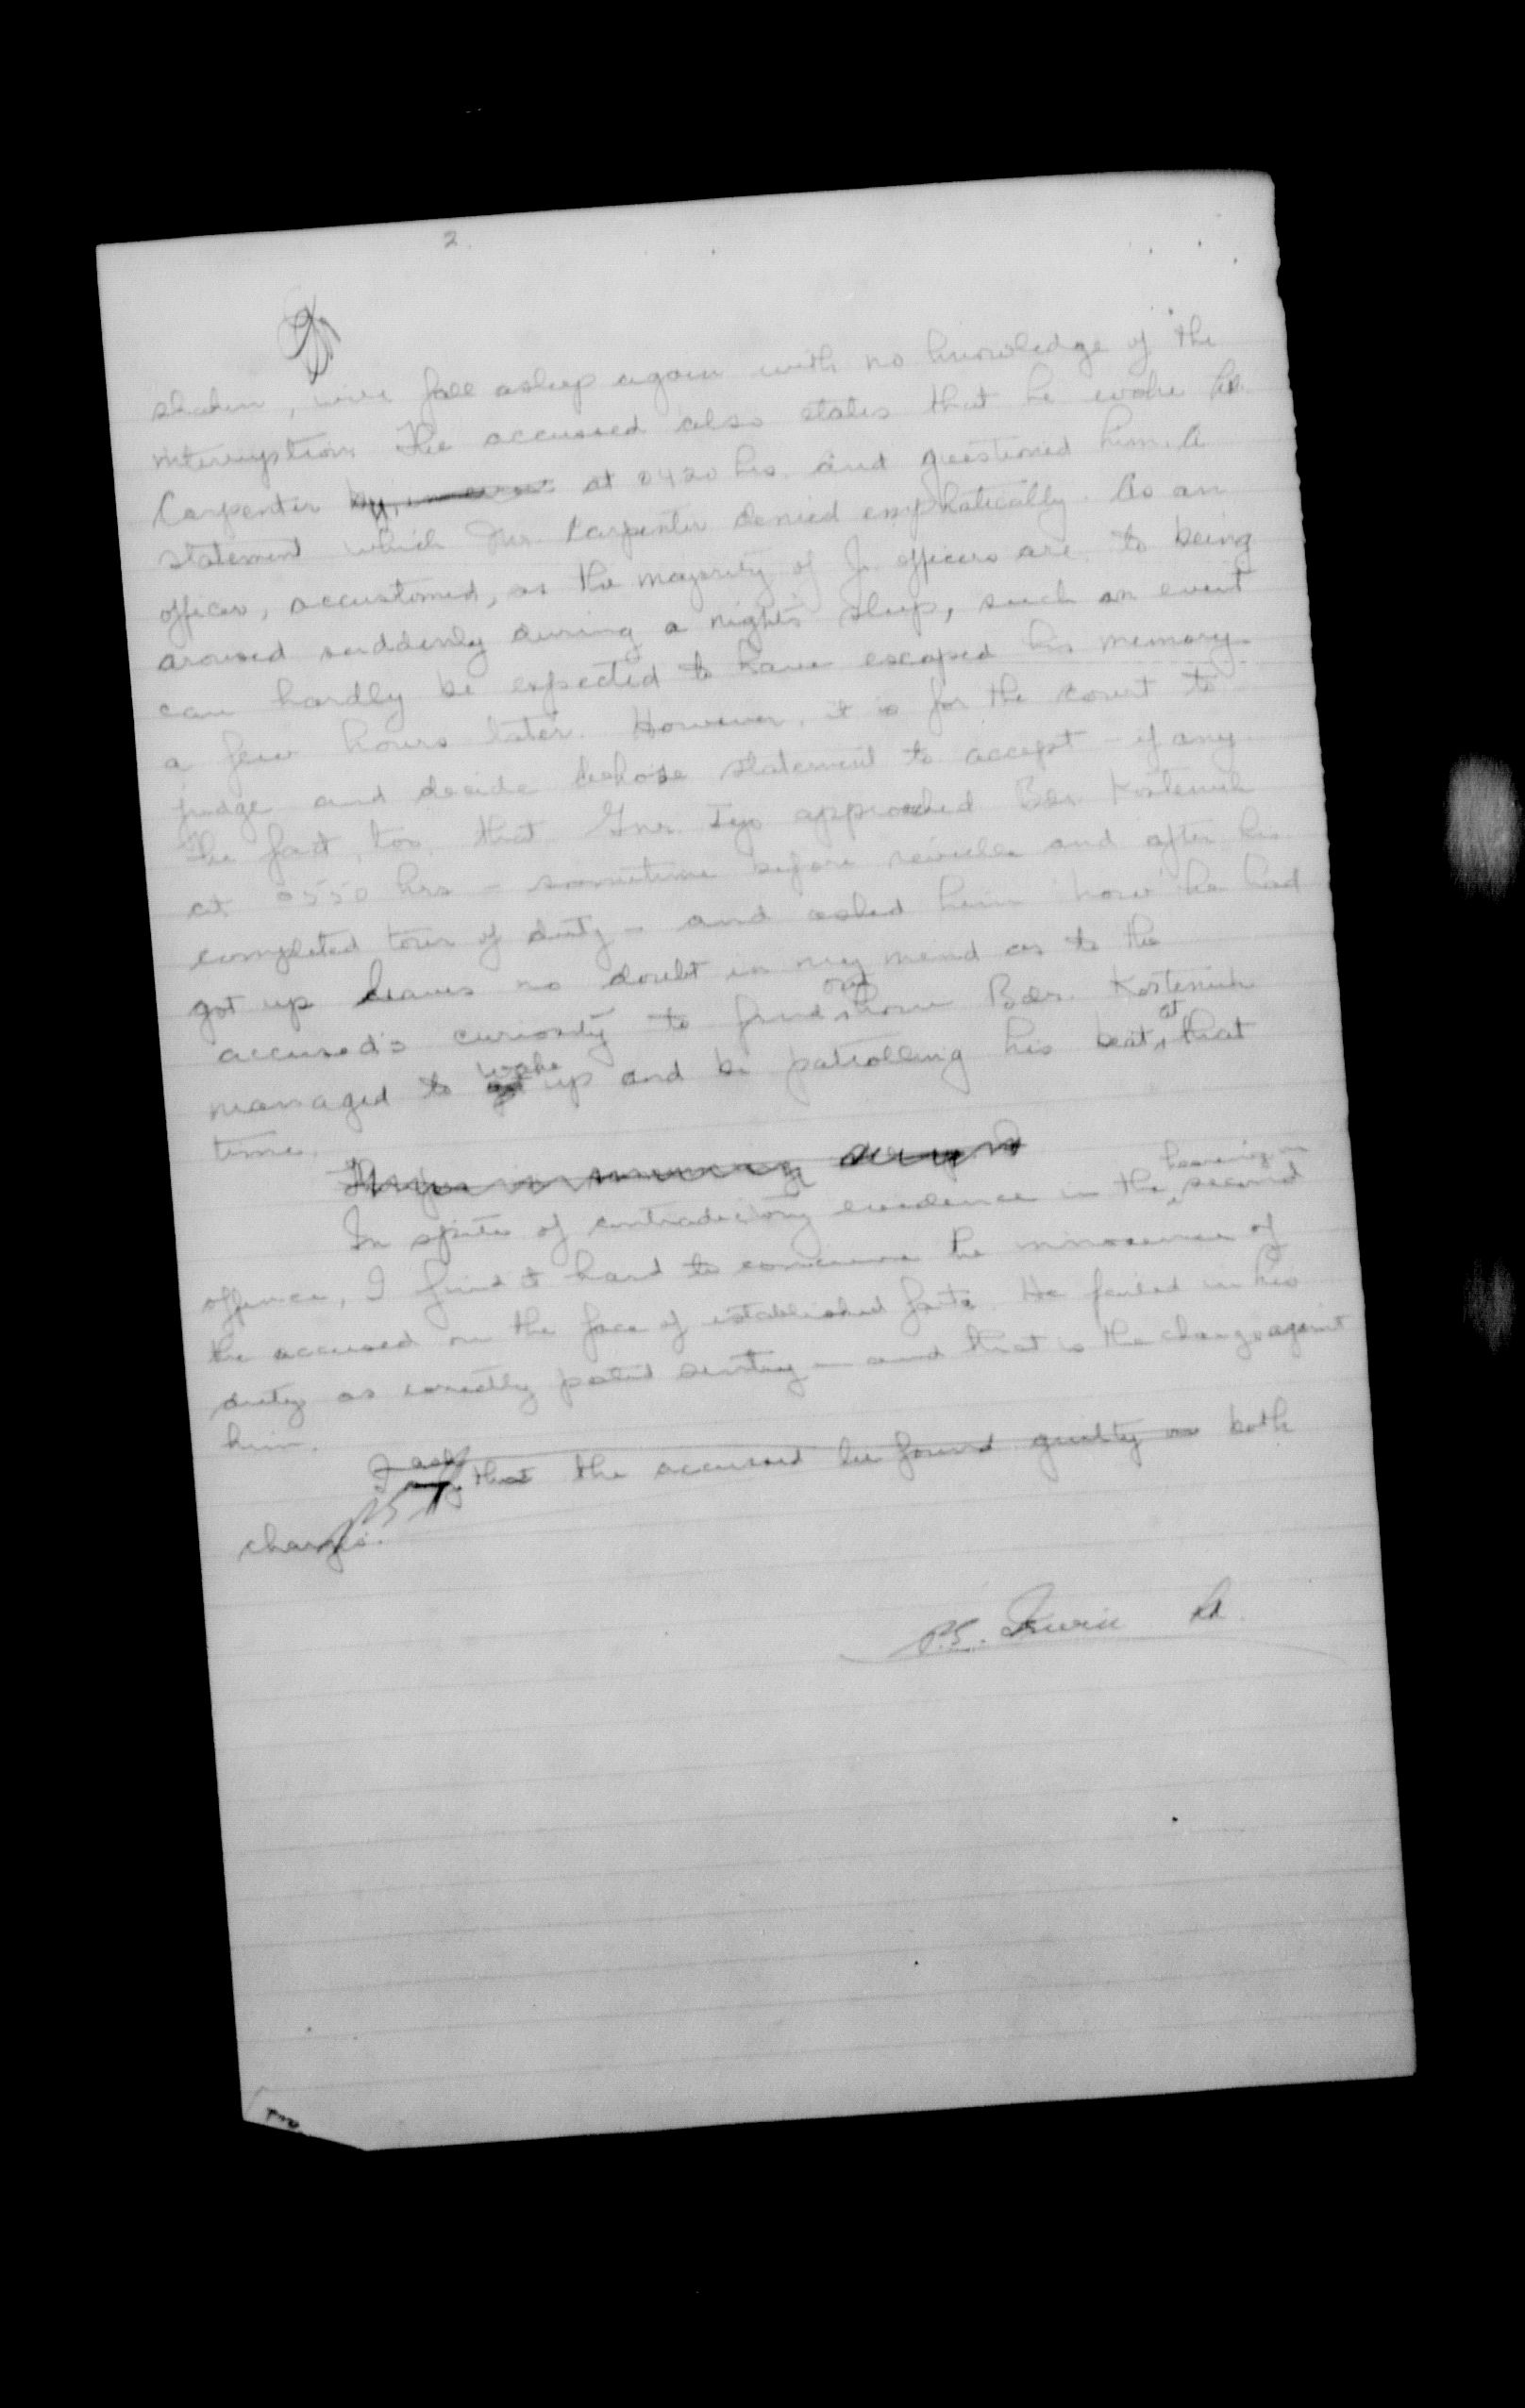 2.
shaken, will fall asleep again with no knowledge of the
interruption. The accused also states that he woke Lt.
Carpenter at 0420 hrs. and questioned him. A
statement which Mr. Carpenter denied emphatically. As an
officer, accustomed, as the majority of Jr. officers are, to being
aroused suddenly during a night's sleep, such an event
can hardly be expected to have escaped his memory
a few hours later. However, it is for the court to
judge and decide whose statement to accept - if any.
The fact, too, that Gnr. approached Bdr. Kosteniuk
at 0550 hrs - sometime before reveille and after his
completed tour of duty - and asked him how he had
got up leaves no doubt in my mind as to the
accused's curiosity to find out how Bdr. Kosteniuk
managed to wake up and be patrolling his beat at that
time.
In spite of contradictory evidence in the hearing on second
offence, I find it hard to conceive the innocence of
the accused on the face of established facts. He failed in his
duty as correctly posted sentry - and that is the charge against
him.
I ask that the accused be found guilty on both
charges.
P.E. Irwin Lt.